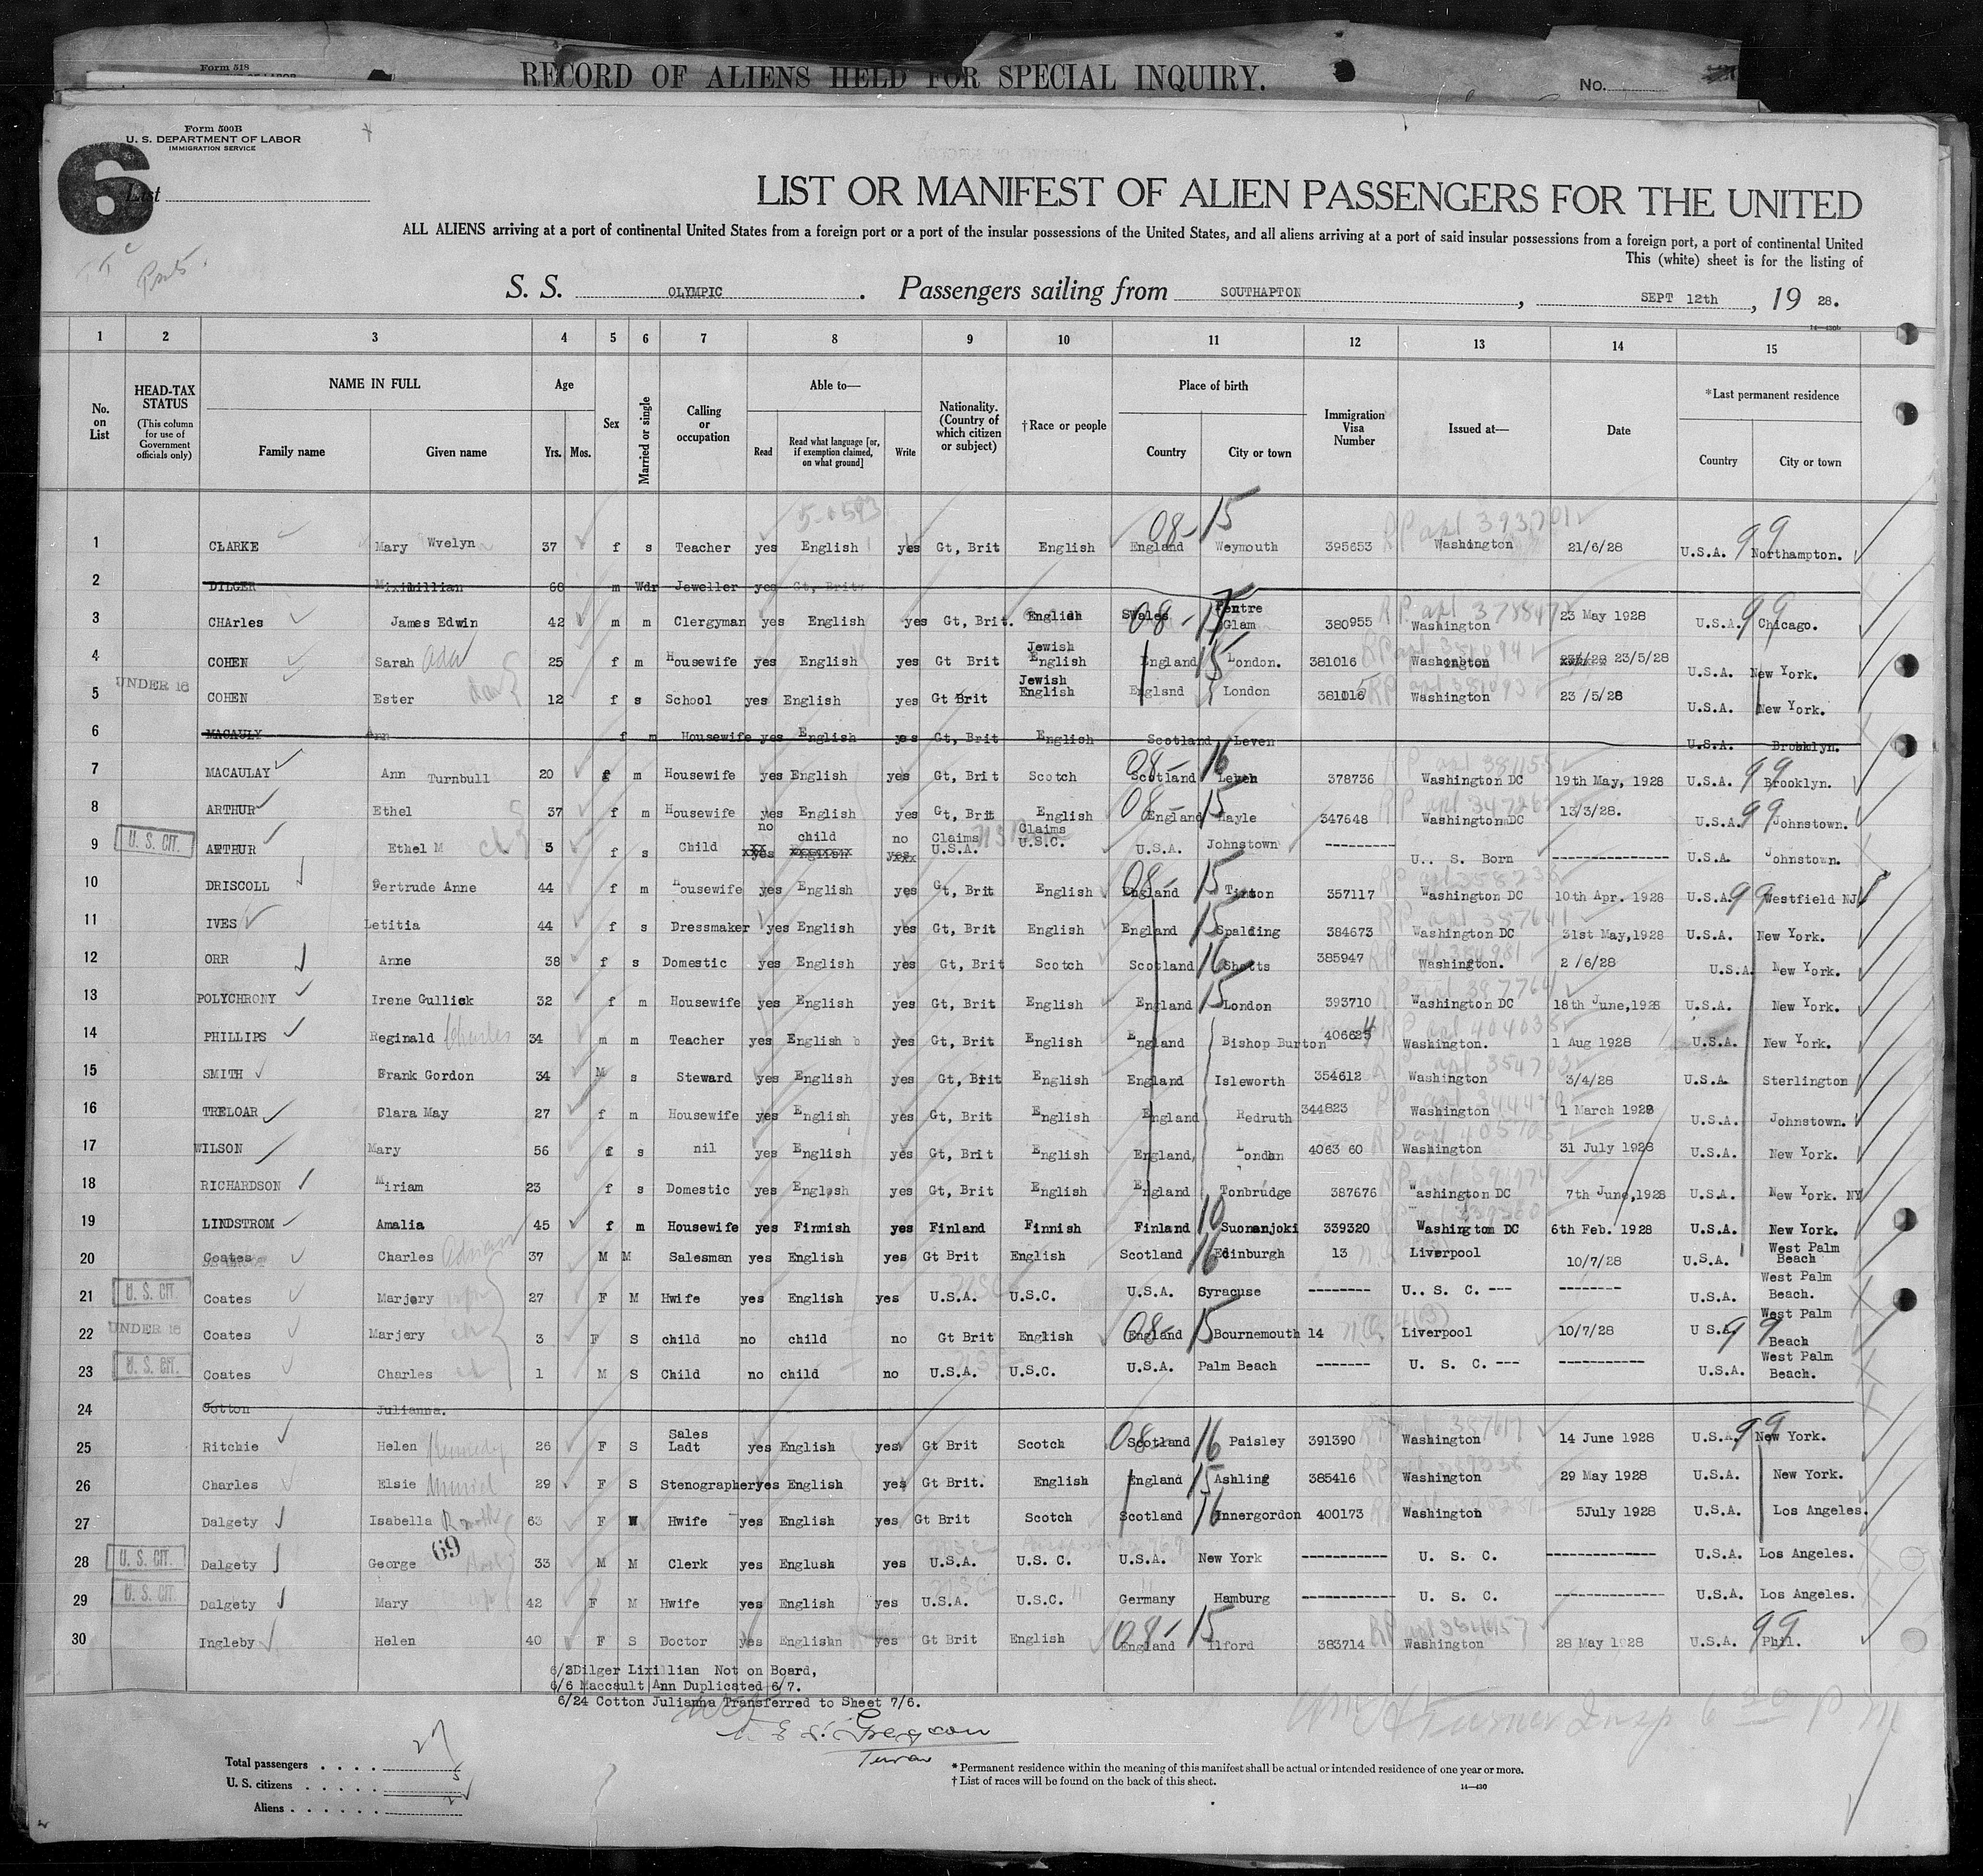 Form 518
RECORD OF ALIENS HELD FOR SPECIAL INQUIRY.
No.
Form 500B
U. S. DEPARTMENT OF LABOR
IMMIGRATION SERVICE
6
List
LIST OR MANIFEST OF ALIEN PASSENGERS FOR THE UNITED
ALL ALIENS arriving at a port of continental United States from a foreign port or a port of the insular possessions of the United States, and all aliens arriving at a port of said insular possessions from a foreign port, a port of continental United
This (white) sheet is for the listing of
S. S. OLYMPIC. Passengers sailing from SOUTHAPTON, SEPT 12th, 19 28.
1 2 3 4 5 6 7 8 9 10 11 12 13 14 15
No. on List
HEAD-TAX STATUS (This column for use of Government officials only)
NAME IN FULL Family name Given name
Age Yrs. Mos.
Sex
Married or single
Calling or occupation
Able to— Read Read what language [or, if exemption claimed, on what ground] Write
Nationality. (Country of which citizen or subject)
†Race or people
Place of birth Country City or town
Immigration Visa Number
Issued at—
Date
*Last permanent residence Country City or town
1 CLARKE Mary Wvelyn 37 f s Teacher yes English yes Gt, Brit English England Weymouth 395653 Washington 21/6/28 U.S.A. Northampton.
2 DILGER Miximillian 68 m Wdr Jeweller yes Gt, Brit
3 CHArles James Edwin 42 m m Clergyman yes English yes Gt, Brit. English Wales Pentre Glam 380955 Washington 23 May 1928 U.S.A. Chicago.
4 COHEN Sarah 25 f m Housewife yes English yes Gt Brit Jewish English England London. 381016 Washington 23/5/28 U.S.A. New York.
UNDER 16
5 COHEN Ester 12 f s School yes English yes Gt Brit Jewish English England London 381015 Washington 23 /5/28 U.S.A. New York.
6 MACAULY Ann f m Housewife yes English yes Gt, Brit English Scotland Leven U.S.A. Brooklyn.
7 MACAULAY Ann Turnbull 20 f m Housewife yes English yes Gt, Brit Scotch Scotland Leven 378736 Washington DC 19th May, 1928 U.S.A. Brooklyn.
8 ARTHUR Ethel 37 f m Housewife yes English yes Gt, Brit English England Hayle 347648 Washington DC 13/3/28. U.S.A. Johnstown.
9 U. S. CIT. ARTHUR Ethel M 3 f s Child no child no Claims U.S.A. Claims U.S.C. U.S.A. Johnstown ---------- U.. S. Born --------------- U.S.A. Johnstown.
10 DRISCOLL Gertrude Anne 44 f m Housewife yes English yes Gt, Brit English England 357117 Washington DC 10th Apr. 1928 U.S.A. Westfield NJ
11 IVES Letitia 44 f s Dressmaker yes English yes Gt, Brit English England Spalding 384673 Washington DC 31st May,1928 U.S.A. New York.
12 ORR Anne 38 f s Domestic yes English yes Gt, Brit Scotch Scotland Shotts 385947 Washington. 2 /6/28 U.S.A. New York.
13 POLYCHRONY Irene Gullick 32 f m Housewife yes English yes Gt, Brit English England London 393710 Washington DC 18th June,1928 U.S.A. New York.
14 PHILLIPS Reginald Charles 34 m m Teacher yes English yes Gt, Brit English England Bishop Burton 406624 Washington. 1 Aug 1928 U.S.A. New York.
15 SMITH Frank Gordon 34 M s Steward yes English yes Gt, Brit English England Isleworth 354612 Washington 3/4/28 U.S.A. Sterlington
16 TRELOAR Clara May 27 f m Housewife yes English yes Gt, Brit English England Redruth 344823 Washington 1 March 1928 U.S.A. Johnstown.
17 WILSON Mary 56 f s nil yes English yes Gt, Brit English England, London 4063 60 Washington 31 July 1928 U.S.A. New York.
18 RICHARDSON Miriam 23 f s Domestic yes English yes Gt, Brit English England Tonbrudge 387676 Washington DC 7th June,1928 U.S.A. New York. NY
19 LINDSTROM Amalia 45 f m Housewife yes Finnish yes Finland Finnish Finland Suonenjoki 339320 Washington DC 6th Feb. 1928 U.S.A. New York.
20 Coates Charles 37 M M Salesman yes English yes Gt Brit English Scotland Edinburgh 13 Liverpool 10/7/28 U.S.A. West Palm Beach
21 U. S. CIT. Coates Marjory 27 F M Hwife yes English yes U.S.A. U.S.C. U.S.A. Syracuse -------- U.. S. C. --- -------- U.S.A. West Palm Beach.
UNDER 16
22 Coates Marjery 3 F S child no child no Gt Brit English England Bournemouth 14 Liverpool 10/7/28 U S.A. West Palm Beach
23 U. S. CIT. Coates Charles 1 M S Child no child no U.S.A. U.S.C. U.S.A. Palm Beach ------- U. S. C. --- ----------- U.S.A. West Palm Beach.
24 Cotton Julianna.
25 Ritchie Helen Kennedy 26 F S Sales Ladt yes English yes Gt Brit Scotch Scotland Paisley 391390 Washington 14 June 1928 U.S.A. New York.
26 Charles Elsie Muriel 29 F S Stenographer yes English yes Gt Brit. English England Ashling 385416 Washington 29 May 1928 U.S.A. New York.
27 Dalgety Isabella R 63 F W Hwife yes English yes Gt Brit Scotch Scotland Innergordon 400173 Washington 5July 1928 U.S.A. Los Angeles.
69
28 U. S. CIT. Dalgety George 33 M M Clerk yes Englush yes U.S.A. U.S. C. U.S.A. New York ----------- U. S. C. -------------- U.S.A. Los Angeles.
29 U. S. CIT. Dalgety Mary 42 F M Hwife yes English yes U.S.A. U.S.C. Germany Hamburg ------------ U. S. C. -------------- U.S.A. Los Angeles.
30 Ingleby Helen 40 F S Doctor yes Englishn yes Gt Brit English England Ilford 383714 Washington 28 May 1928 U.S.A. Phil.
6/2Dilger Lixillian Not on Board,
6/6 Maccault Ann Duplicated 6/7.
6/24 Cotton Julianna Transferred to Sheet 7/6.
Total passengers . . . . 27
U. S. citizens . . . . . 5
Aliens . . . . . .
* Permanent residence within the meaning of this manifest shall be actual or intended residence of one year or more.
† List of races will be found on the back of this sheet.
14—430